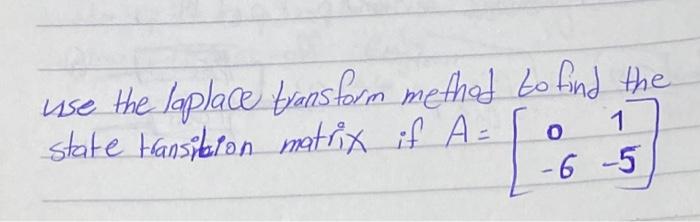 use the laplace transform method to find the
state transition matrix if A = [ 0 1
-6 -5 ]